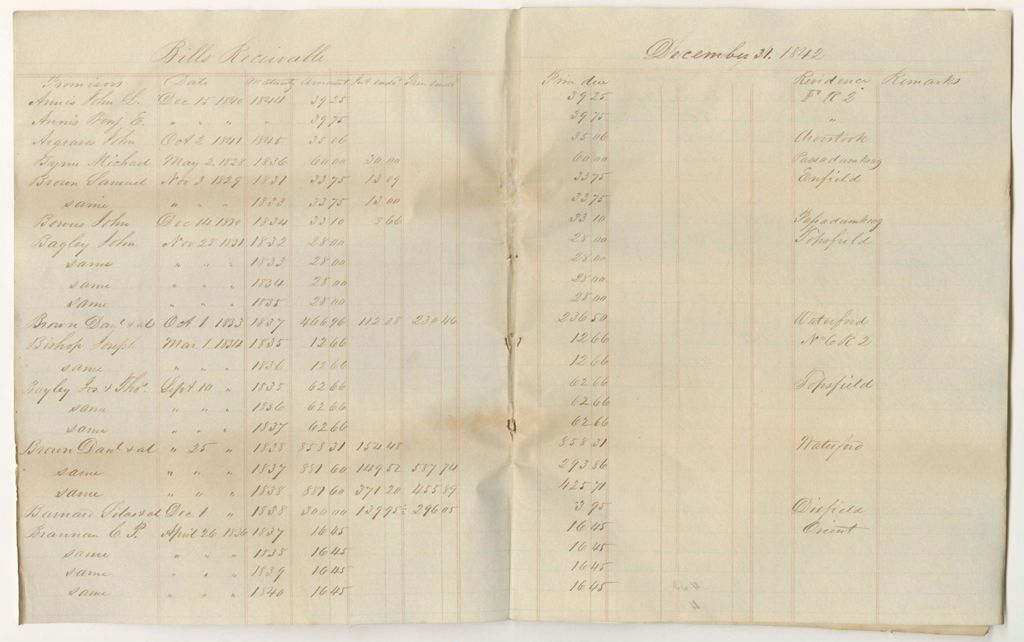 Bills Receivable December 31. 1842
Promisors Date Maturity Amount Int ends Prin ends Prin due Residence Remarks
Annis John S. Dec 15 1840 1844 39 25 39 25 F R 2
Annis Benj E. " " " " 39 75 39 75 "
Argraves John Oct 2 1841 1845 35 06 35 06 Aroostook
Byrne Michael May 2 1828 1836 60 00 30 00 60 00 Passadumkeag
Brown Samuel Nov 3 1829 1831 33 75 13 09 33 75 Enfield
same " " " 1833 33 75 13 00 33 75
Bowus John Dec 14 1830 1834 33 10 8 66 33 10 Passadumkeag
Bagley John Nov 28 1831 1832 28 00 28 00 Topsfield
same " " " 1833 28 00 28 00
same " " " 1834 28 00 28 00
same " " " 1835 28 00 28 00
Brown Danl & al Oct 1 1833 1837 466 96 112 08 230 46 236 50 Waterford
Bishop Joseph Mar 1 1834 1835 12 66 12 66 No 6 R 2
same 1836 12 66 12 66
Bayley Jos. & Thos Sept 10 " 1835 62 66 62 66 Topsfield
same " " " 1836 62 66 62 66
same " " " 1837 62 66 62 66
Brown Danl & al " 25 " 1838 858 31 154 48 858 31 Waterford
same " " " 1837 881 60 149 52 587 74 293 86
same " " " 1838 881 60 371 20 455 89 425 71
Barnard Silas & al Dec 1 " 1838 300 00 139 95 296 05 3 95 Dixfield
Brannan C. P. April 26 1836 1837 16 45 16 45 Orient
same " " " 1838 16 45 16 45
same " " " 1839 16 45 16 45
same " " " 1840 16 45 16 45